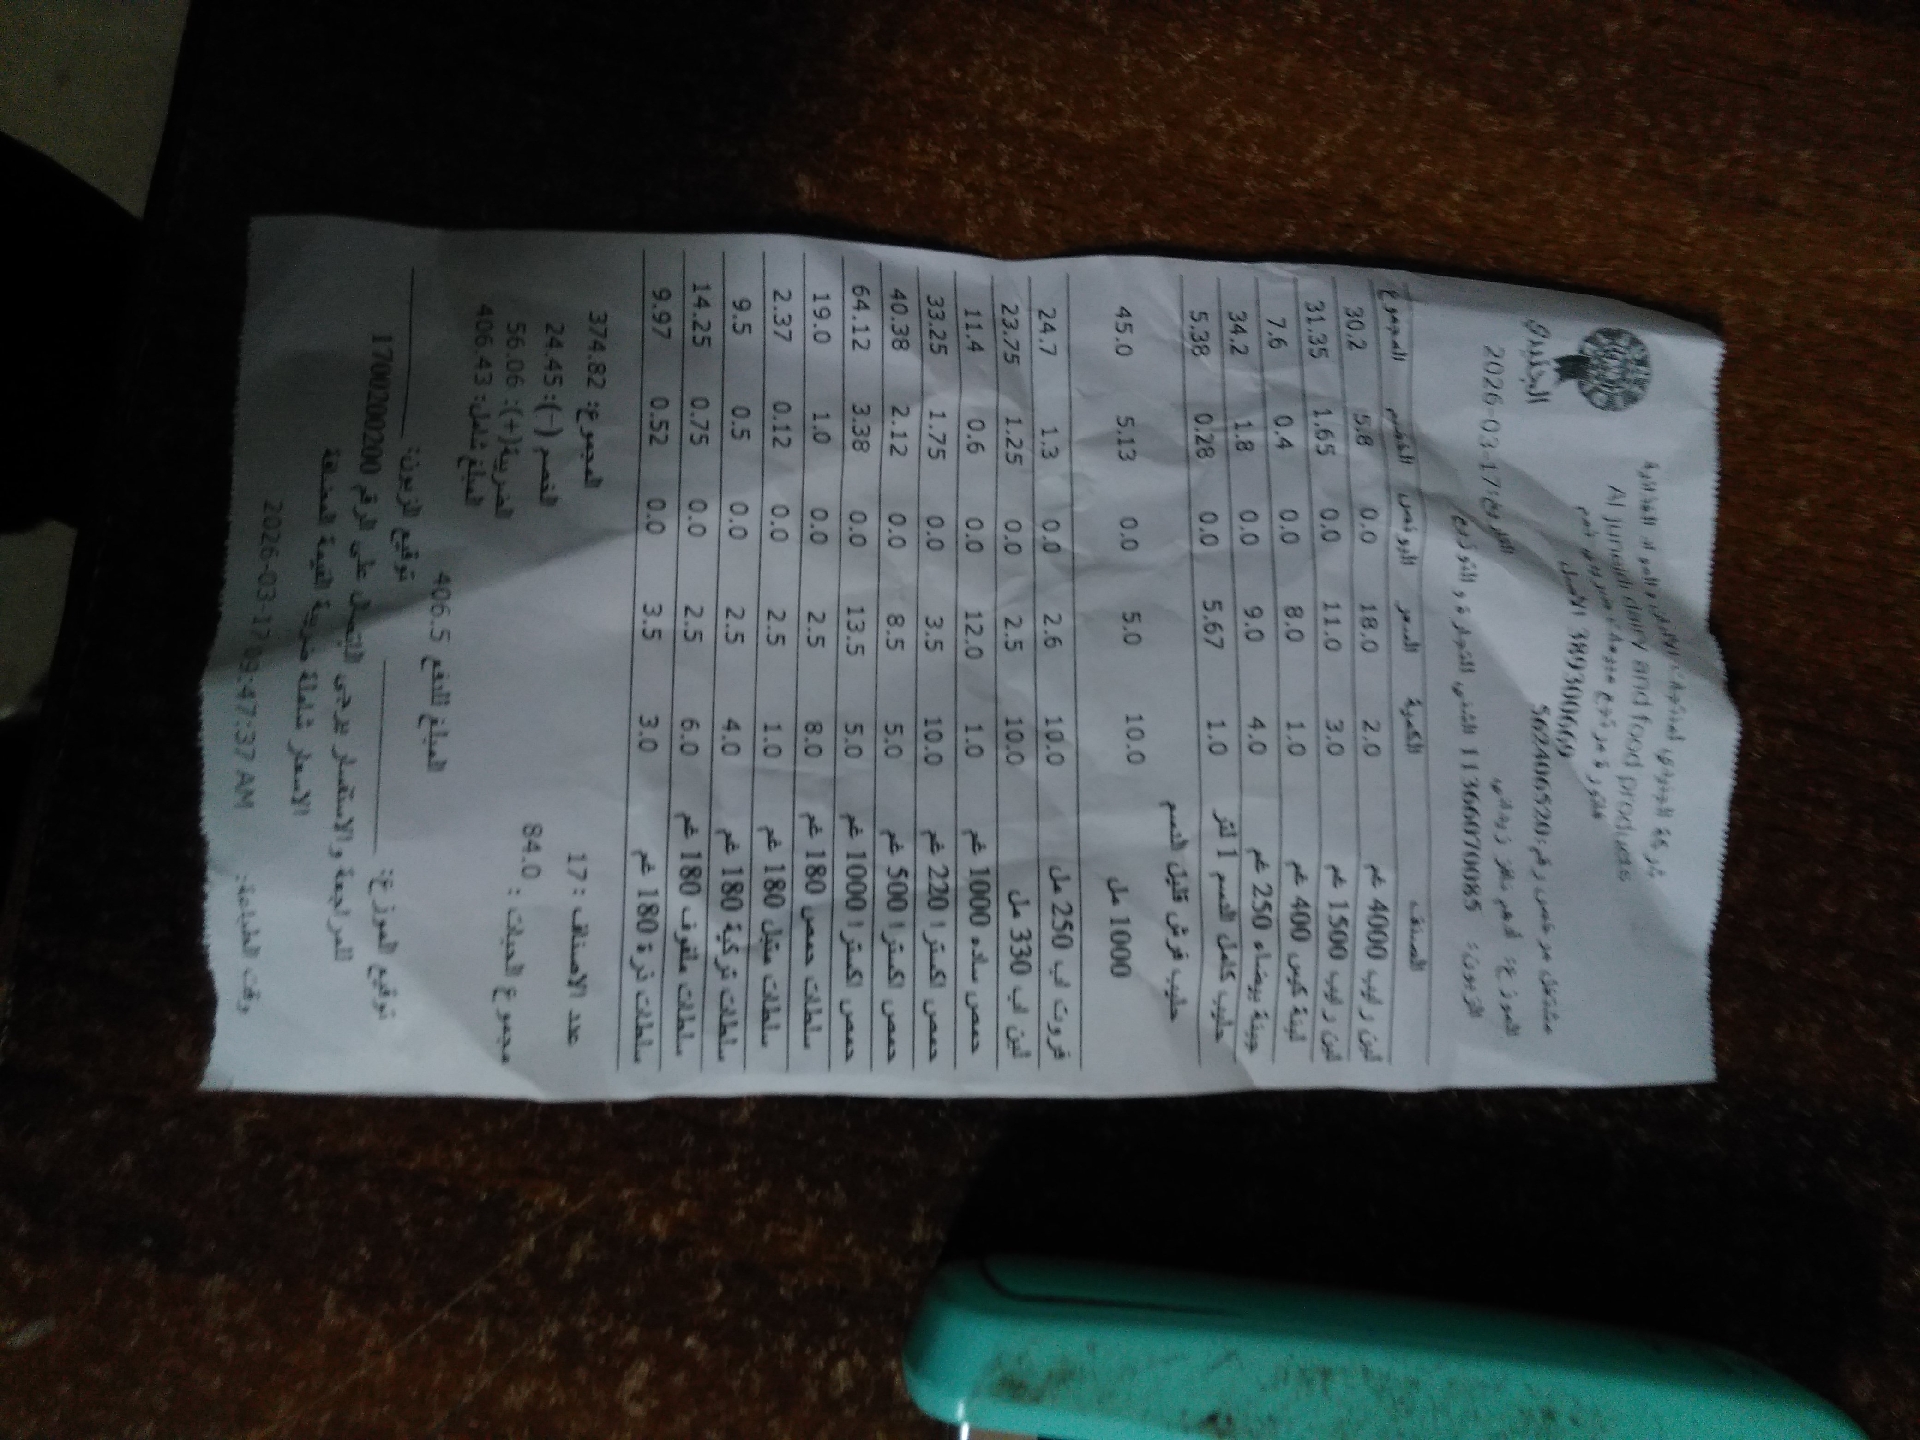 شركة الجنيدي لمنتجات الالبان والمواد الغذائية
Al juneidi dairy and food products
فاتورة مرتجع مدفوعات ضريبي قسم
389300669 الاصل
الجنيدي
مشتغل مرخص رقم: 562406520
الموزع: ادهم
التاريخ: 2026-03-17
الزبون: 1136607008S الشني للتجارة والتوزيع
الصنف الكمية السعر البونص الخصم المجموع
لبن رايب 4000 غم 2.0 18.0 0.0 5.8 30.2
لبن رايب 1500 غم 3.0 11.0 0.0 1.65 31.35
لبنة كيس 400 غم 1.0 8.0 0.0 0.4 7.6
جبنة بيضاء 250 غم 4.0 9.0 0.0 1.8 34.2
حليب كامل الدسم 1 لتر 1.0 5.67 0.0 0.28 5.38
حليب فرش قليل الدسم
1000 مل 10.0 5.0 0.0 5.13 45.0
فروت اب 250 مل 10.0 2.6 0.0 1.3 24.7
لبن اب 330 مل 10.0 2.5 0.0 1.25 23.75
حمص ساده 1000 غم 1.0 12.0 0.0 0.6 11.4
حمص اكسترا 220 غم 10.0 3.5 0.0 1.75 33.25
حمص اكسترا 500 غم 5.0 8.5 0.0 2.12 40.38
حمص اكسترا 1000 غم 5.0 13.5 0.0 3.38 64.12
سلطات حمص 180 غم 8.0 2.5 0.0 1.0 19.0
سلطات متبل 180 غم 1.0 2.5 0.0 0.12 2.37
سلطات تركية 180 غم 4.0 2.5 0.0 0.5 9.5
سلطات ملفوف 180 غم 6.0 2.5 0.0 0.75 14.25
سلطات ذرة 180 غم 3.0 3.5 0.0 0.52 9.97
عدد الاصناف : 17 المجموع: 374.82
مجموع الحبات : 84.0 الخصم (-): 24.45
الضريبة(+): 56.06
المبلغ شامل: 406.43
المبلغ للدفع 406.5
توقيع الموزع: توقيع الزبون:
للمراجعة والاستفسار يرجى الاتصال على الرقم 1700200200
الاسعار شاملة ضريبة القيمة المضافة
وقت الطباعة: 2026-03-17 09:47:37 AM